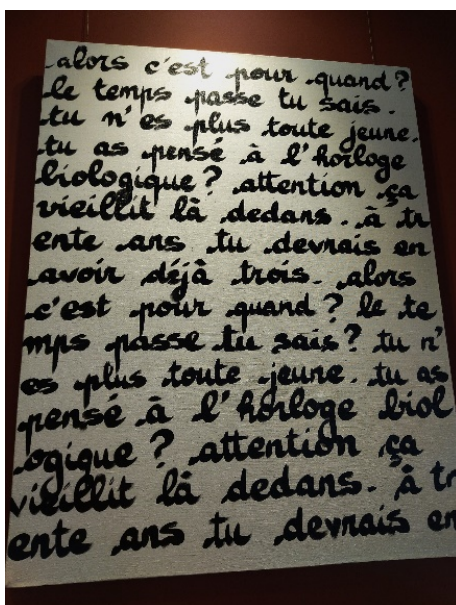 alors c'est pour quand?
le temps passe tu sais.
tu n'es plus toute jeune.
tu as pensé à l'horloge
biologique? attention ça
vieillit là dedans. à tr
ente ans tu devrais en
avoir déjà trois. alors
c'est pour quand? le te
mps passe tu sais? tu n'
es plus toute jeune. tu as
pensé à l'horloge biol
ogique? attention ça
vieillit là dedans. à tr
ente ans tu devrais en